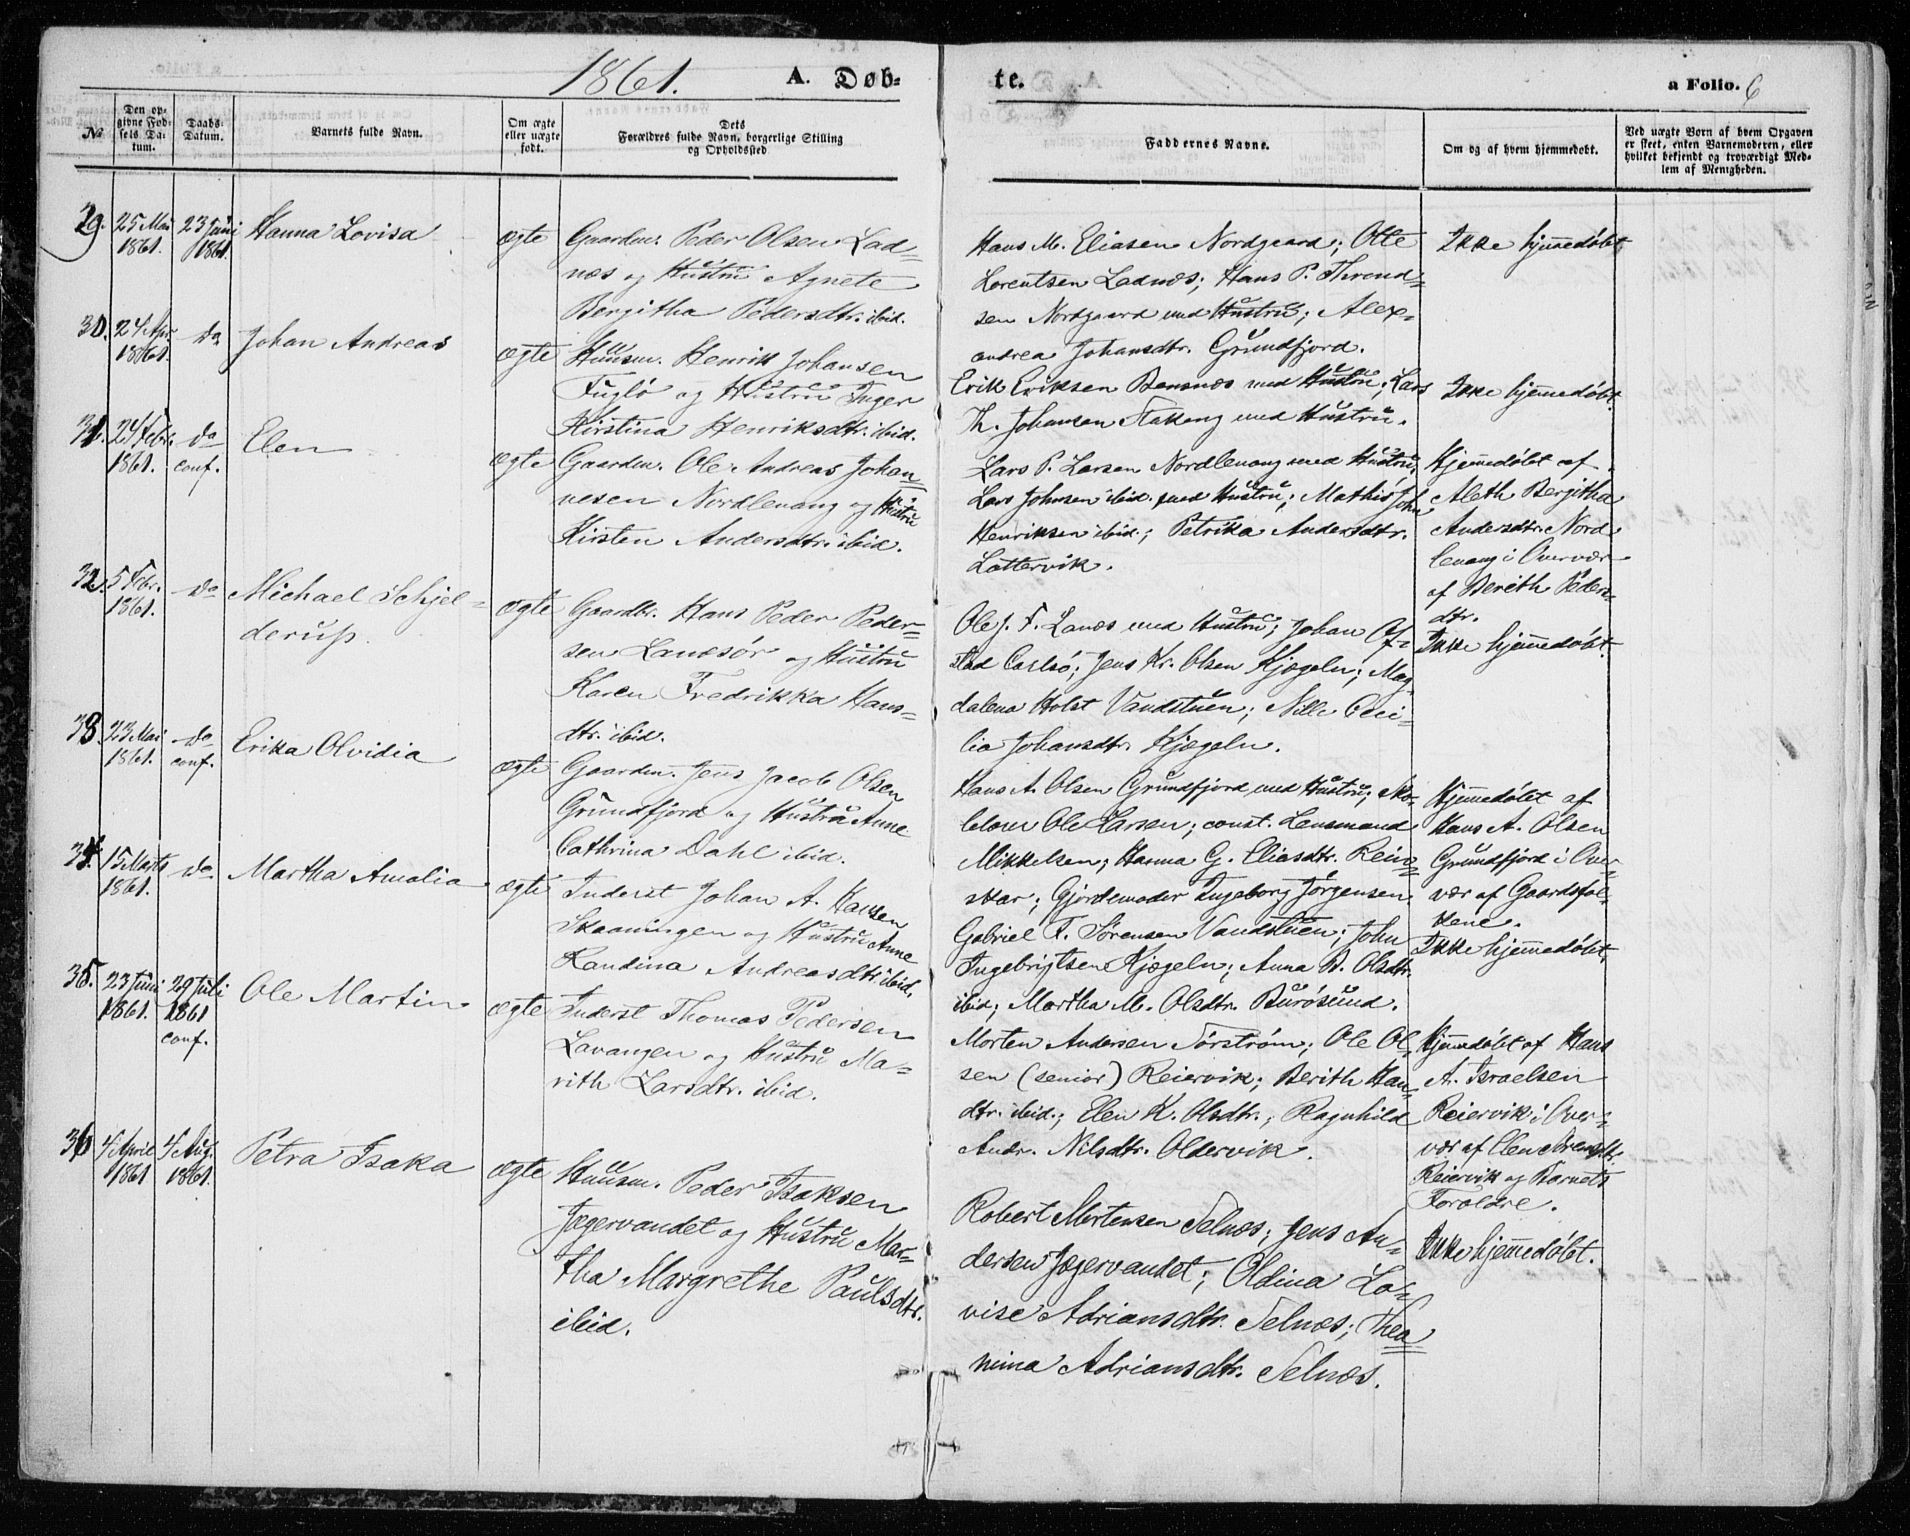 1861. A. Døb-
te.
a Folio. 6
№
Den op-
givne Fød-
sels Da-
tum.
Daabs-
Datum.
Barnets fulde Navn.
Om ægte
eller uægte
født.
Dets
Forældres fulde Navn, borgerlige Stilling
og Opholdssted
Faddernes Navne.
Om og af hvem hjemmedøbt.
Ved uægte Børn af hvem Opgaven
er skeet, enten Barnemoderen, eller
hvilket bekjendt og troværdigt Med-
lem af Menigheden.
29.
25 Mai
1861.
23 Juni
1861.
Hanna Lovisa
ægte
Gaardm. Peder Olsen Lad-
næs og Hustru Agnete
Bergitha Pedersdtr. ibid.
Hans M. Eliasen Nordgaard; Otte
Lorentsen Ladnæs; Hans P. Thrond-
sen Nordgaard med Hustru; Alex-
andrea Johansdtr. Grundfjord.
Ikke hjemmedøbt
30.
24 Apr.
1861.
do
Johan Andreas
ægte
Huusm. Henrik Johansen
Fuglø og Hustru Inger
Kirstina Henriksdtr. ibid.
Erik Eriksen Bensnæs med Hustru; Lars
Th. Johansen Stakeng med Hustru.
Ikke hjemmedøbt.
31.
24 Febr.
1861.
do
conf.
Elen
ægte
Gaardm. Ole Andreas Johan-
nesen Nordlenang og Hustru
Kirsten Andersdtr. ibid.
Lars P. Larsen Nordlenang med Hustru;
Lars Johnsen ibid. med Hustru; Mathis John
Henriksen ibid.; Petrika Andersdtr.
Lattervik.
Hjemmedøbt af
Aleth Bergitha
Andersdtr. Nord
lenang i Overvær
af Berith Peders-
dtr.
32.
5 Febr.
1861.
do
Michael Schjel-
derup.
ægte
Gaardbr. Hans Peder Peder-
sen Lanesør og Hustru
Karen Fredrikka Hans-
dtr. ibid.
Ole J. F. Lanes med Hustru; Johan Of-
stad Carlsø; Jens Kr. Olsen Kjægeln; Mag-
dalena Holst Vandstuen; Nille Ceci-
lia Johansdtr. Kjægeln.
Ikke hjemmedøbt.
33.
23 Mai
1861.
do
conf.
Erika Olvidia
ægte
Gaardm. Jens Jacob Olsen
Grundfjord og Hustru Anne
Cathrina Dahl ibid.
Hans A. Olsen Grundfjord med Hustru; Sko-
lelærer Ole Larsen; const. Lensmand
Mikkelsen; Hanna G. Eliasdtr. Rein-
skar; Gjordemoder Ingeborg Jørgensen
Hjemmedøbt af
Hans A. Olsen
Grundfjord i Over-
vær af Gaardsfol-
kene.
34.
15 Marts
1861.
do
Martha Amalia
ægte
Inderst Johan A. Hansen
Skaaningen og Hustru Anne
Kandina Andreasdtr. ibid.
Gabriel F. Sørensen Vandstuen; John
Ingebrigtsen Kjægeln; Anna B. Olsdtr.
ibid; Martha M. Olsdtr. Burøsund.
Ikke hjemmedøbt.
35.
23 Juni
1861.
29 Juli
1861
conf.
Ole Martin
ægte
Inderst Thomas Pedersen
Lavangen og Hustru Ma-
rith Larsdtr. ibid.
Morten Andersen Sørstrøm; Ole Ol-
sen (senior) Reiervik; Berith Han-
dtr. ibid.; Elen K. Olsdtr.; Ragnhild
Andr. Nilsdtr. Oldervik.
Hjemmedøbt af Hans
A. Israelsen
Reiervik i Over-
vær af Elen Arensdtr.
Reiervik og Barnets
Forældre.
36
4 April
1861
4 Aug.
1861.
Petra Isaka
ægte
Huusm. Peder Isaksen
Jægervandet og Hustru Mar-
tha Margrethe Paulsdtr.
ibid.
Robert Mortensen Selnæs; Jens An-
dersen Jægervandet; Oldina Lo-
vise Adriansdtr. Selnæs; Thea
nina Adriansdtr. Selnæs.
Ikke hjemmedøbt.